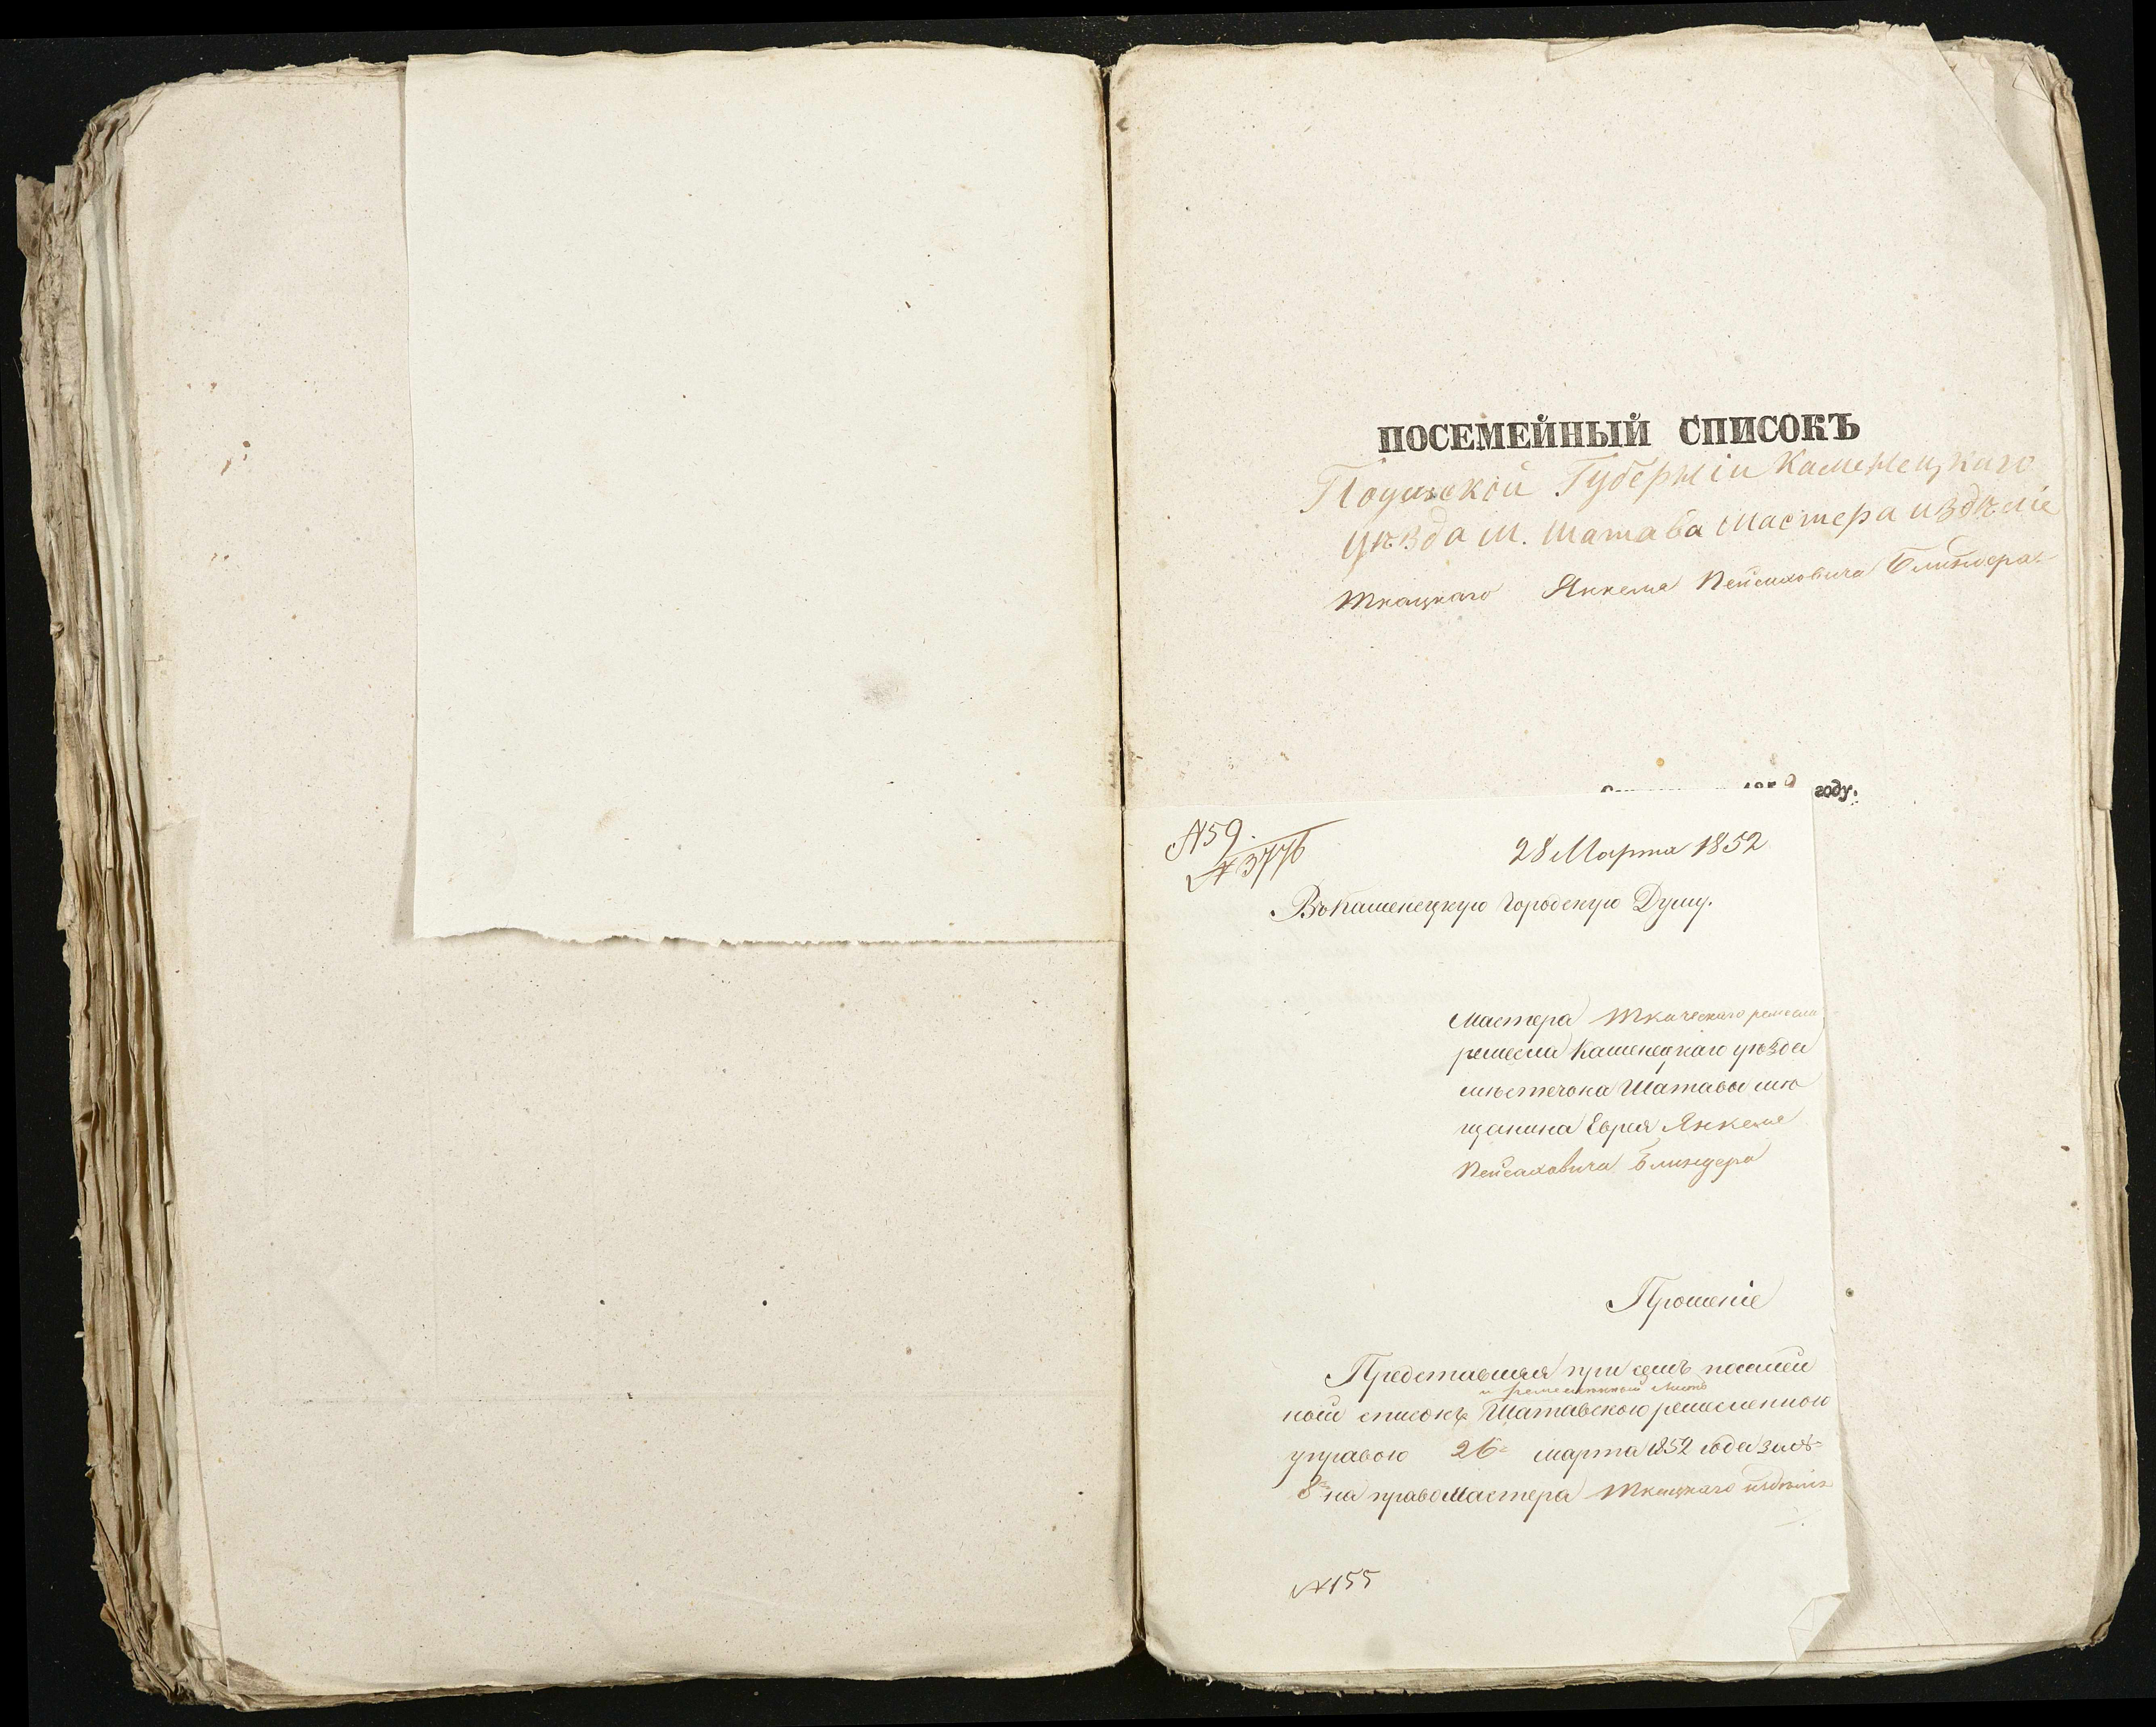 ПОСЕМЕЙНЫЙ СПИСОКЪ
Подольской Губерніи Каменецкаго
уѣзда м. Шатава мастера издѣліе
ткацкаго Янкеля Пейсаховича Блиндера
185 году.
№ 59.
№ 3776
28 Марта 1852
Въ Каменецкую Городскую Думу.
Мастера ткаческаго ремесла
ремесла Каменецкаго уѣзда
мѣстечка Шатавы мѣ
щанина Еврея Янкеля
Пейсаховича Блиндера
Прошеніе
Представляя при семъ посемей
и ремесленный листъ
ной списокъ Шатавскою ремесленною
управою 26 марта 1852 года за №
8 на право Мастера ткацкаго издѣлія
№ 155